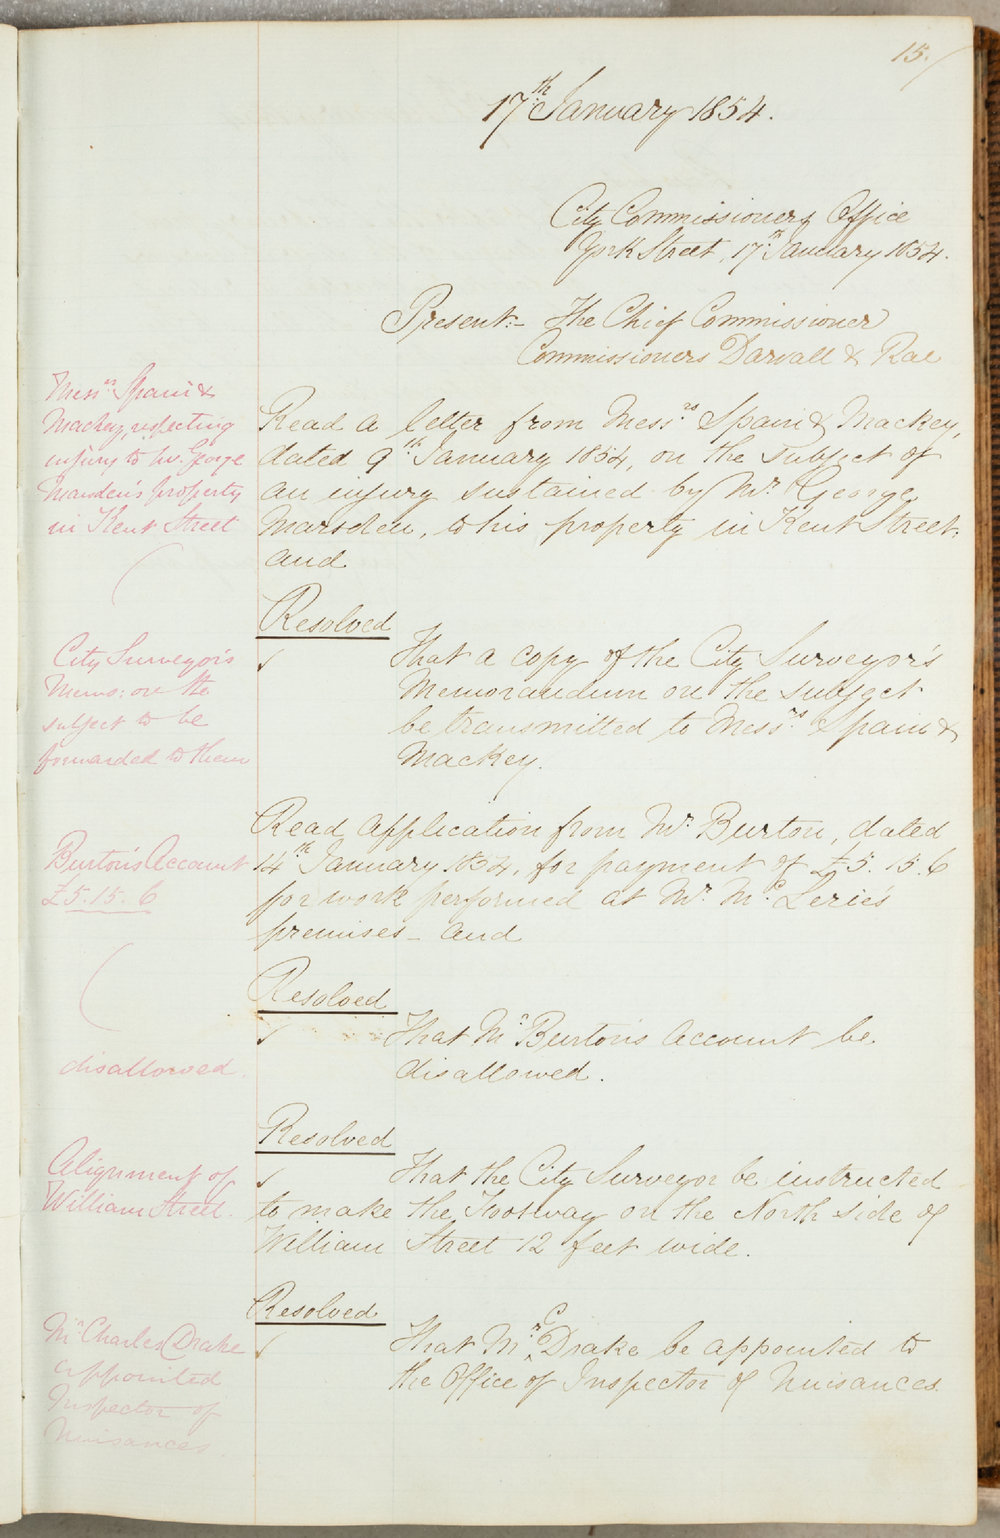 15.
17th January 1854.
City Commissioners Office
York Street, 17th January 1854.
Present:- The Chief Commissioner
Commissioners Darvall & Rae
Messrs Spain &
Mackey, respecting
injury to Mr. George
Marsden's property
in Kent Street
Read a letter from Messrs Spain & Mackey,
dated 9th January 1854, on the subject of
an injury sustained by Mr George
Marsden, to his property in Kent Street.
and
Resolved
City Surveyor's
Memo: on the
subject to be
forwarded to them
That a copy of the City Surveyor's
Memorandum on the subject
be transmitted to Messrs Spain &
Mackey.
Burton's Account
£5.15.6
Read application from Mr Burton, dated
14th January 1854, for payment of £5.15.6
for work performed at Mr McLerie's
premises - and
Resolved
disallowed.
That Mr Burton's Account be
disallowed.
Resolved
Alignment of
William Street.
That the City Surveyor be instructed
to make the Footway on the North side of
William Street 12 feet wide.
Resolved
Mr Charles Drake
appointed
Inspector of
Nuisances.
That Mr C Drake be appointed to
the Office of Inspector of Nuisances